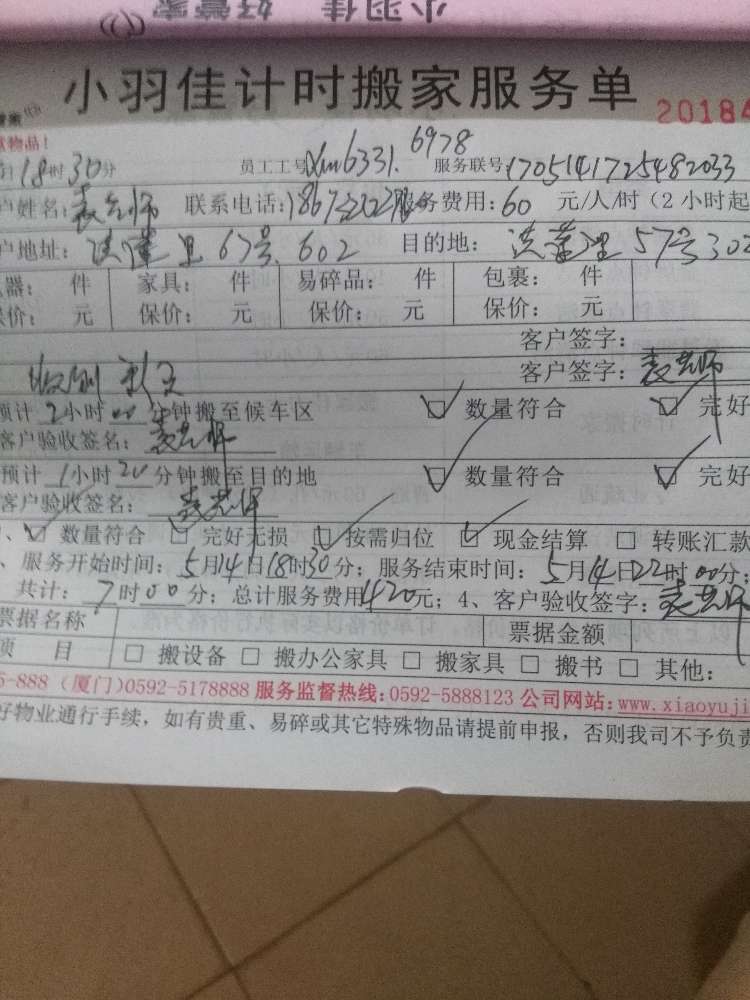 小羽佳 好管家
小羽佳计时搬家服务单 20184
物品!
日18时30分 员工工号Xm6331. 6978 服务联号:1705141725482033
户姓名: 联系电话: 服务费用:60 元/人/时(2小时起
户地址: 67号602 目的地: 57号302
器: 件 家具: 件 易碎品: 件 包裹: 件
保价: 元 保价: 元 保价: 元 保价: 元
客户签字:
客户签字:
预计2小时00分钟搬至候车区 数量符合 完好
客户验收签名:
预计1小时20分钟搬至目的地 数量符合 完好
客户验收签名:
、数量符合 完好无损 按需归位 现金结算 转账汇款
、服务开始时间:5月14日18时30分;服务结束时间:5月14日22时00分;
共计:7时00分;总计服务费用420元;4、客户验收签字:
票据名称 票据金额
项 目 搬设备 搬办公家具 搬家具 搬书 其他:
5-888 (厦门)0592-5178888 服务监督热线:0592-5888123 公司网站:www.xiaoyuji
好物业通行手续,如有贵重、易碎或其它特殊物品请提前申报,否则我司不予负责